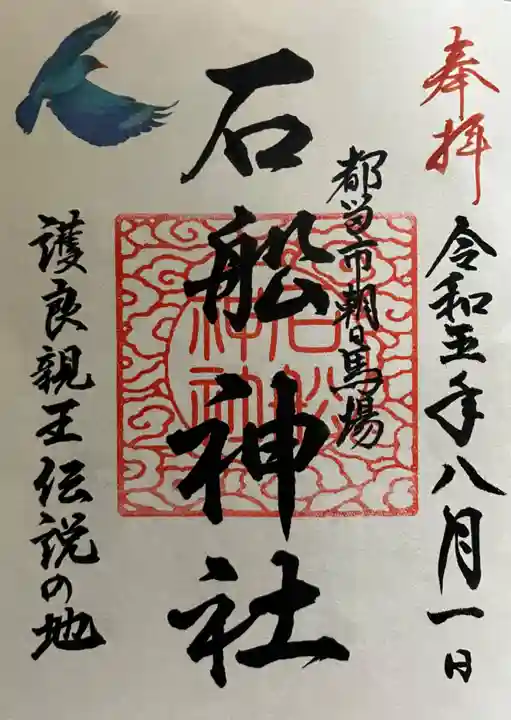 奉拝
令和五年八月一日
都留市朝日馬場
石船神社
石船神社
護良親王伝説の地